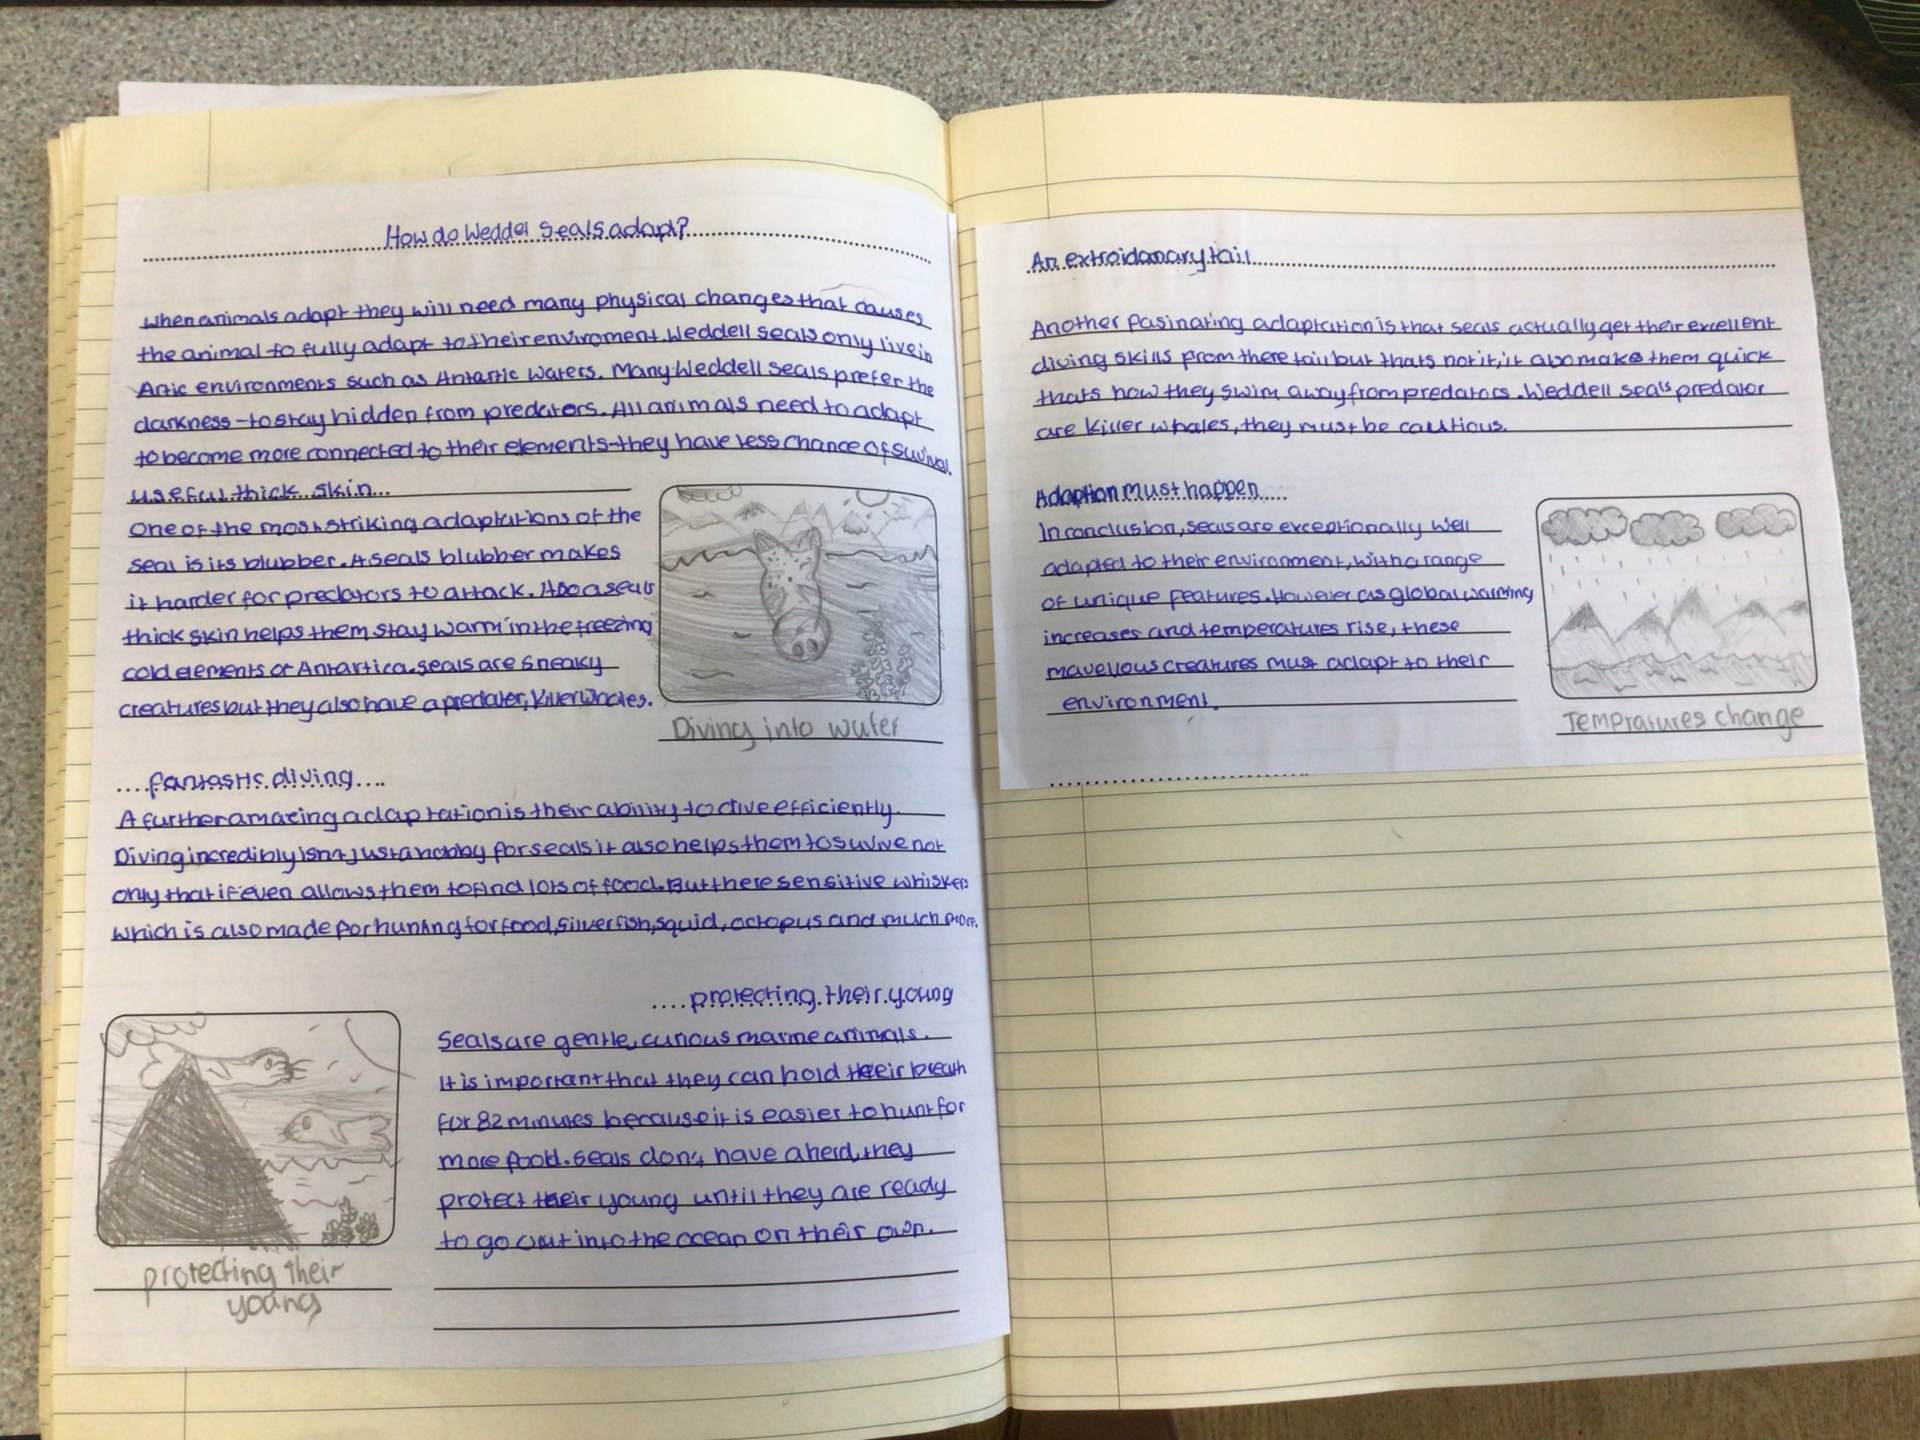 How do Weddel seals adapt?
When animals adapt they will need many physical changes that causes
the animal to fully adapt to their enviroment. Weddell seals only live in
Artic environments such as Antartic waters. Many Weddell seals prefer the
darkness - to stay hidden from predators. All animals need to adapt
to become more connected to their elements - they have less chance of suvival.
useful thick skin...
One of the most striking adaptations of the
seal is its blubber. A seals blubber makes
it harder for predators to attack. Also a seals
thick skin helps them stay warm in the freezing
cold elements of Antartica. seals are sneaky
creatures but they also have a predator, Killer Whales.
Diving into water
....fantastic diving....
A further amazing adaptation is their ability to dive efficiently.
Diving incredibly isn't just a hobby for seals it also helps them to suvive not
only that if even allows them to find lots of food. But there sensitive whiskers
which is also made for hunting for food, silverfish, squid, octopus and much more.
....protecting their young
Seals are gentle, curious marine animals.
It is important that they can hold their breath
for 82 minutes because it is easier to hunt for
more food. Seals don't have a herd, they
protect their young until they are ready
to go out into the ocean on their own.
protecting their
young
An extroidanary tail
Another fasinating adaptation is that seals actually get their excellent
diving skills from there tail but thats not it, it also make them quick
thats how they swim away from predators. Weddell seals predator
are Killer whales, they must be cautious.
Adaption must happen....
In conclusion, seals are exceptionally well
adapted to their environment, with a range
of unique features. However as global warming
increases and temperatures rise, these
mavellous creatures must adapt to their
environment.
Tempratures change